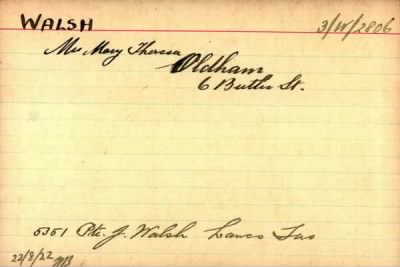 WALSH 3/W/2806
Mrs Mary Theresa
Oldham
6 Butler St.
5351 Pte. J. Walsh Lancs Fus
22/8/22